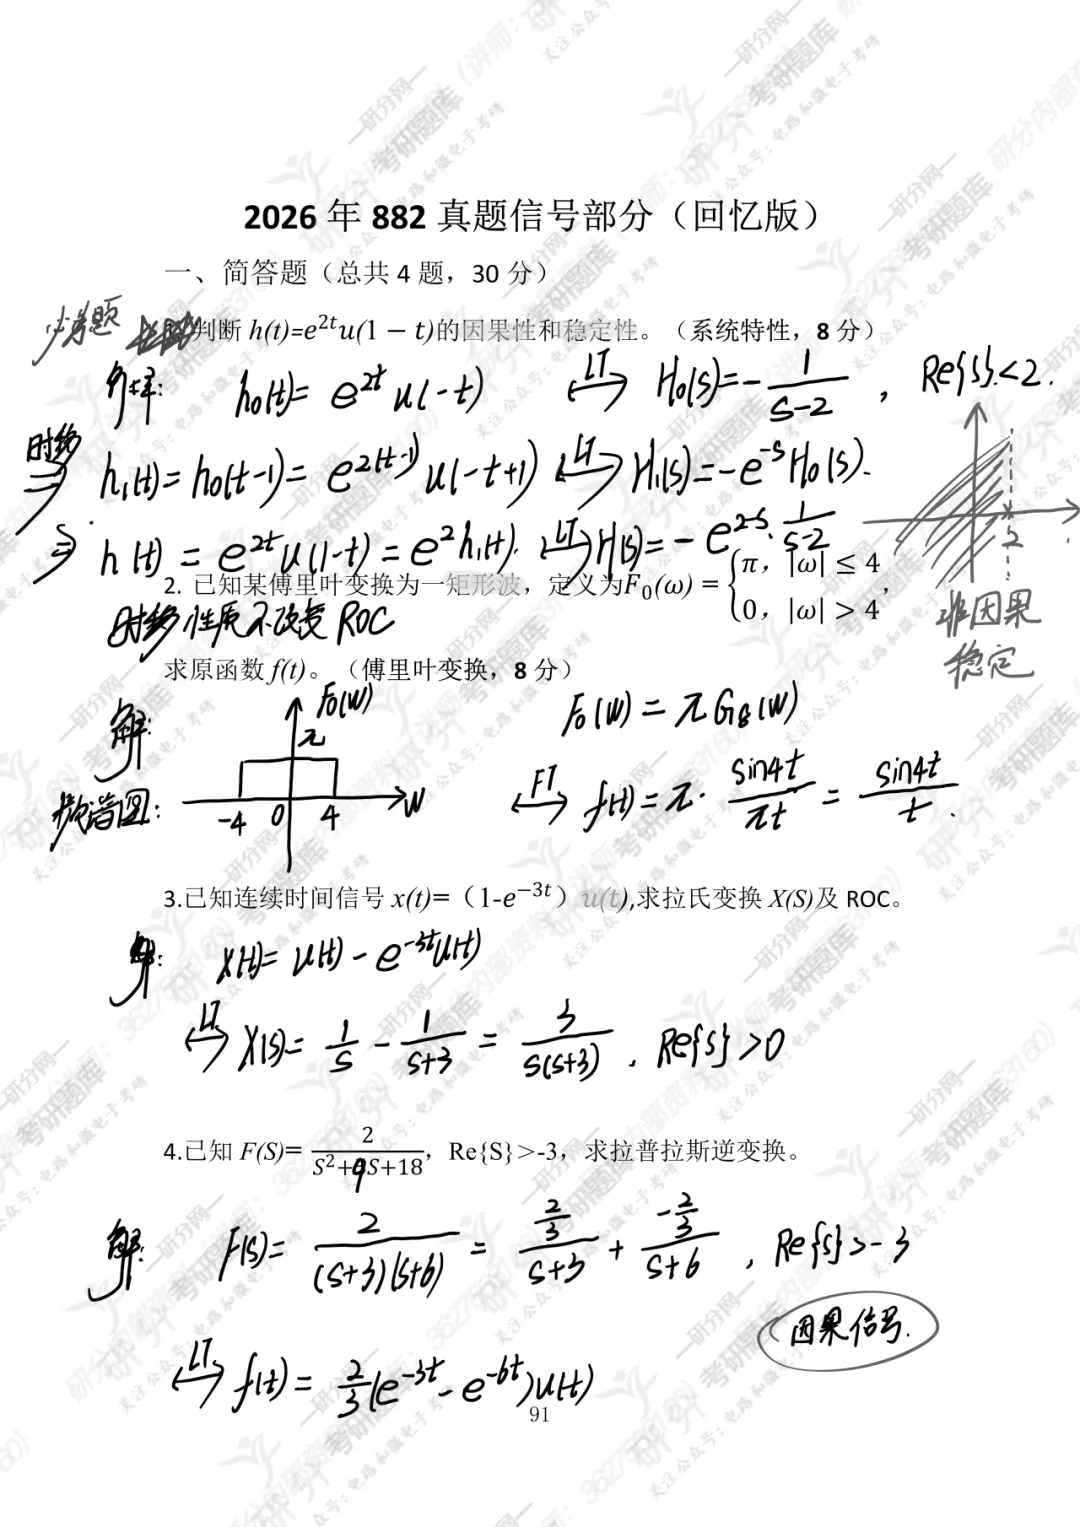 2026 年 882 真题信号部分（回忆版）
一、简答题（总共 4 题，30 分）
判断 h(t)=e^{2t}u(1 − t)的因果性和稳定性。（系统特性，8 分）
解: h₀(t)= e^{2t} u(-t) ⟷LT H₀(s)= -1/(s-2) , Re{s}<2.
时移 ⇒ h₁(t)= h₀(t-1)= e^{2(t-1)} u(-t+1) ⟷LT H₁(s)= -e^{-s}H₀(s).
⇒ h(t) = e^{2t}u(1-t) = e²h₁(t). ⟷LT H(s)= - e^{2-s}·1/(s-2)
2
非因果
稳定
2. 已知某傅里叶变换为一矩形波，定义为F₀(ω) = {π，|ω| ≤ 4
0，|ω| > 4，
时移性质不改变 ROC
求原函数 f(t)。（傅里叶变换，8 分）
解:
频谱图:
F₀(w)
π
-4 0 4 w
F₀(w) = π G₈(w)
⟷FT f(t) = π· sin4t/πt = sin4t/t .
3.已知连续时间信号 x(t)=（1-e^{−3t}）u(t),求拉氏变换 X(S)及 ROC。
解: x(t)= u(t) - e^{-3t}u(t)
⟷LT X(s)= 1/s - 1/(s+3) = 3/(s(s+3)) , Re{s}>0
4.已知 F(S)= 2/(S²+9S+18)，Re{S}>-3，求拉普拉斯逆变换。
解: F(s)= 2/((s+3)(s+6)) = (2/3)/(s+3) + (-2/3)/(s+6) , Re{s}>-3
因果信号.
⟷LT f(t)= 2/3(e^{-3t} - e^{-6t})u(t)
91